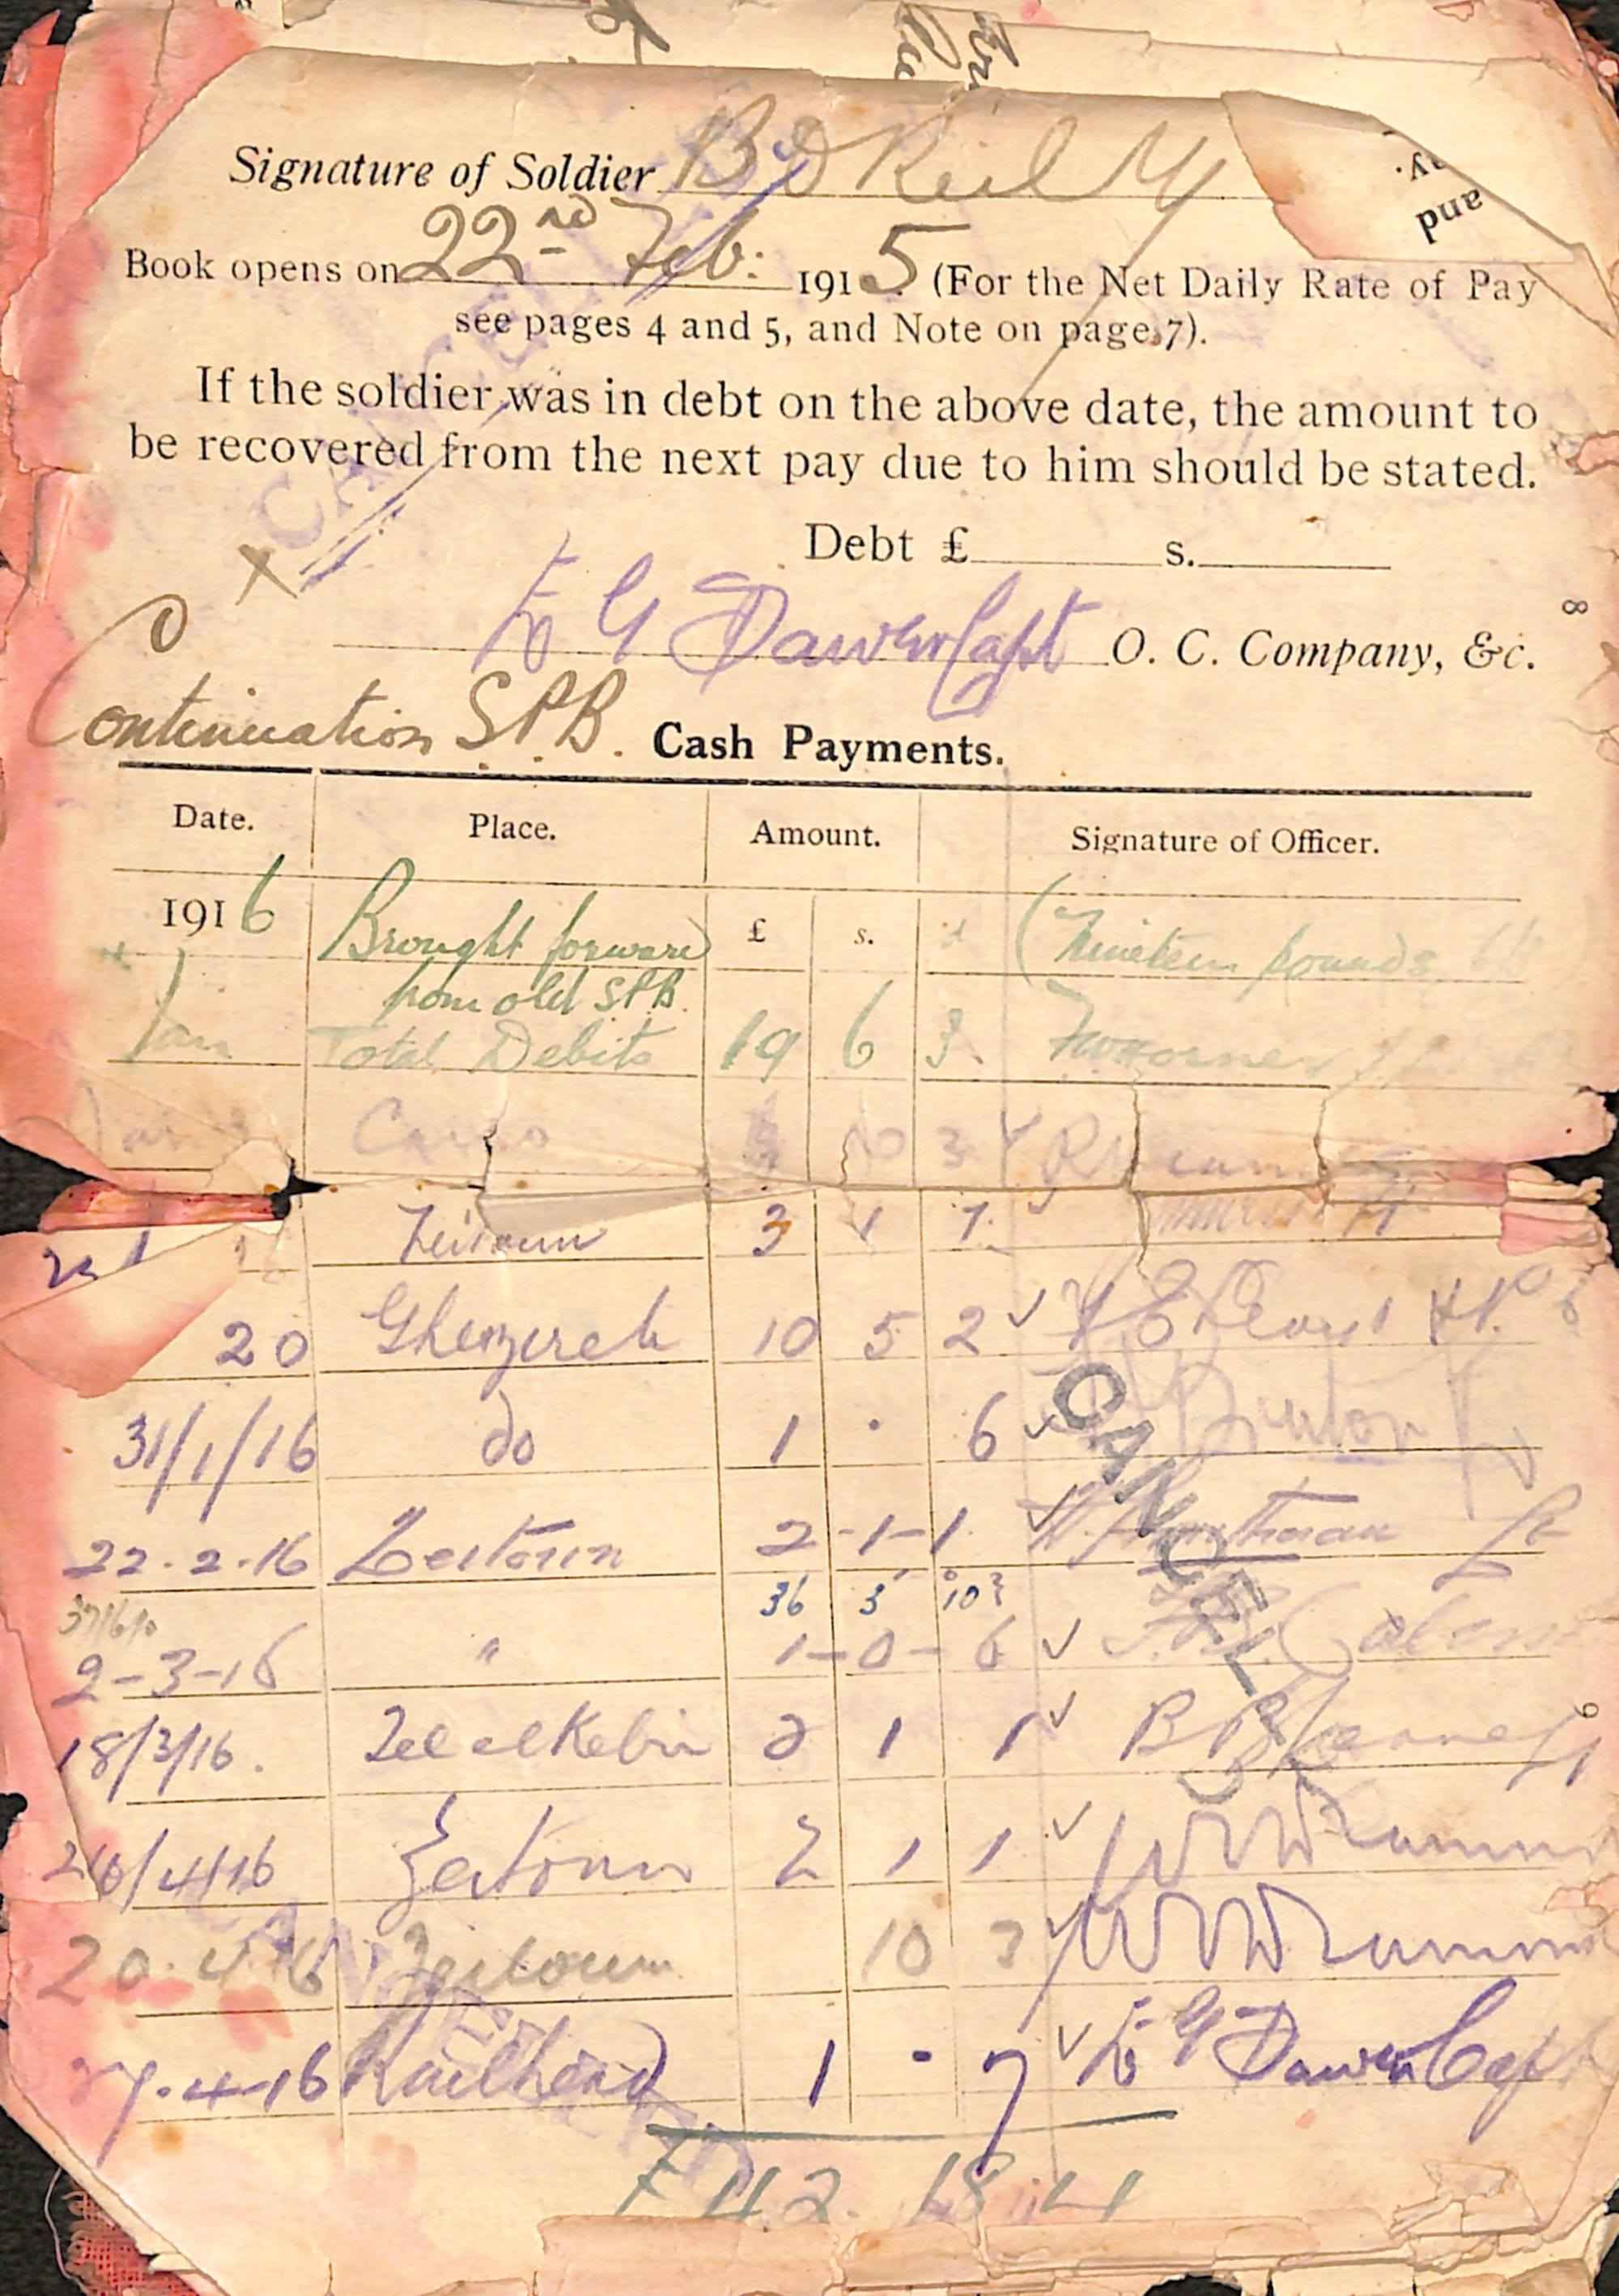 Signature of Soldier B O'Reilly
Book opens on 22nd Feb: 1915 (For the Net Daily Rate of Pay
see pages 4 and 5, and Note on page 7).
If the soldier was in debt on the above date, the amount to
be recovered from the next pay due to him should be stated.
Debt £ s.
Capt O. C. Company, &c.
Continuation S.P.B. Cash Payments.
Date. Place. Amount. Signature of Officer.
1916 Brought forward £ s. Nineteen pounds
from old SPB.
Jan Total Debits 19 6 3.
Cairo
Zeitoun 3 1 7.
20 Ghezireh 10 5 2
31/1/16 do 1 · 6
22.2.16 Zeitoun 2-1-1
36 3 10
2-3-16 " 1-0-6
18/3/16. Tel el Kebir 2 1 1
4/16 Zeitoun 2 1 1
20.4.16 Zeitoun 10 3
27.4.16 Railhead 1 · 7 Capt
£42.18.4
CANCELLED
CANCELLED
and
8
9